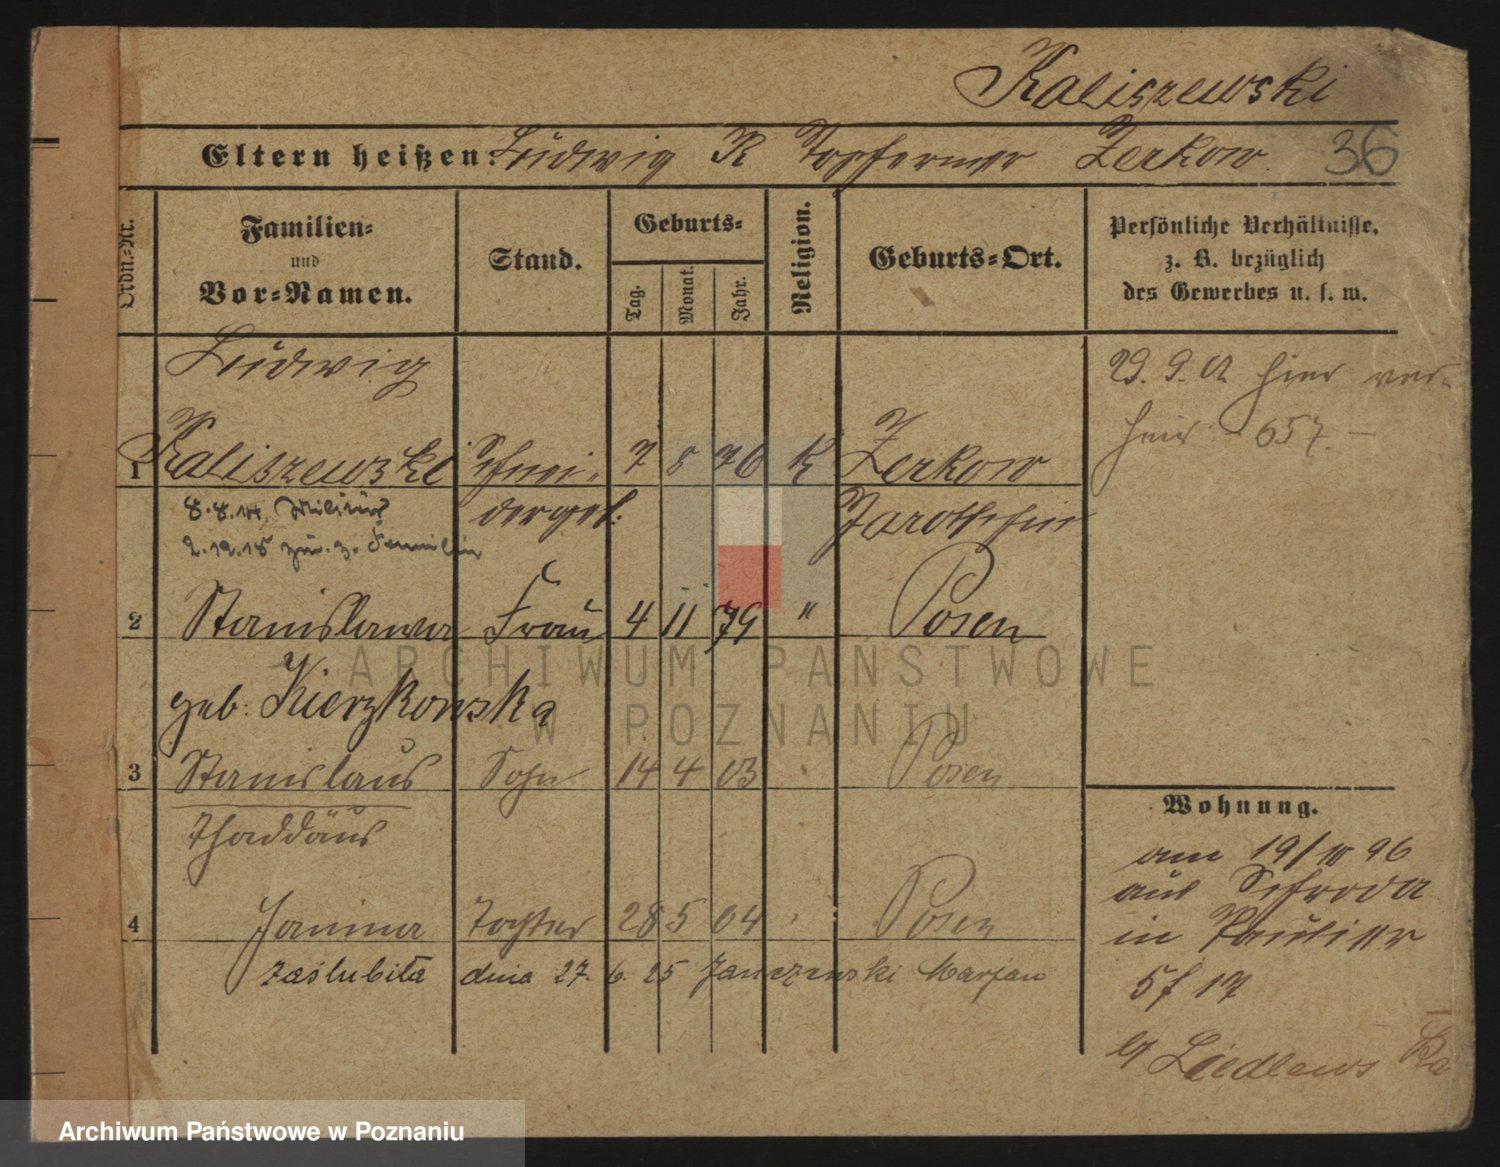 Kaliszewski
Eltern heißen: Ludwig K Zerkow 36
Ordn.-Nr. Familien- und Vor-Namen. Stand. Geburts- Tag. Monat. Jahr. Religion. Geburts-Ort. Persönliche Verhältnisse, z. B. bezüglich des Gewerbes u. s. w.
Ludwig
29. 9. 02 hier ver-
heir. 657.
1 Kaliszewski Schnei- 7 8 76 K Zerkow
8.8.14. Militär derges: Jarotschin
2.12.18 zur. z. Familie
2 Stanislawa Frau 4 11 79 " Posen
geb: Kierzkowska
3 Stanislaus Sohn 14 4 03 " Posen
Thaddäus
4 Janina Tochter 28 5 04 Posen
zaślubiła dnia 27. 6. 25 Janczewski Marjan
Wohnung.
am 19/ 96
aus Schroda
in
17
ARCHIWUM PAŃSTWOWE
W POZNANIU
Archiwum Państwowe w Poznaniu